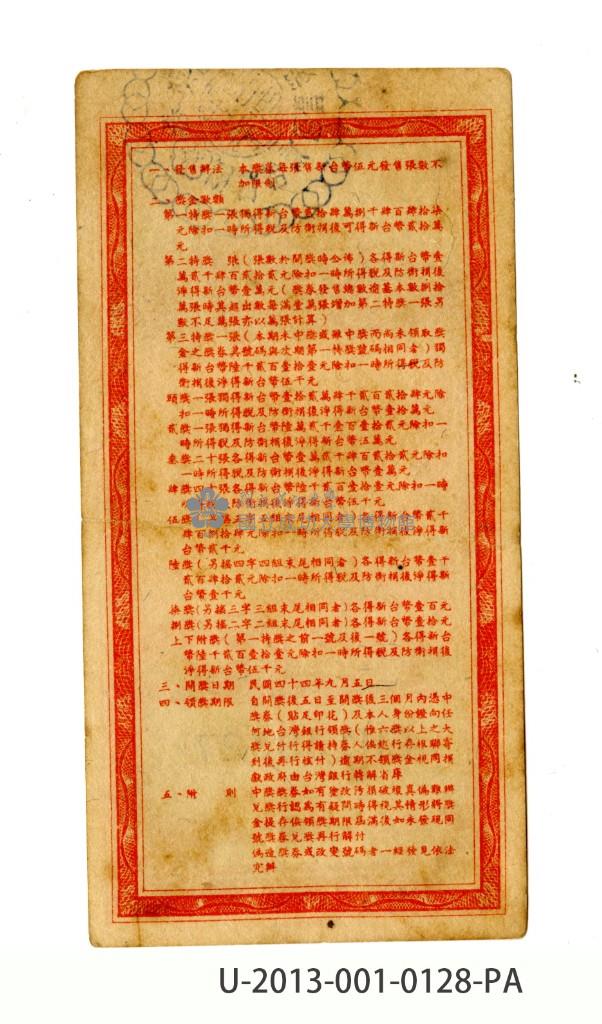 一、發售辦法　本獎券每張售新台幣伍元發售張數不
加限制
二、獎金數額
元除扣一時所得稅及防衛捐後可得新台幣貳拾萬
元
第二特獎　張（張數於開獎時公佈）各得新台幣壹
萬貳千肆百貳拾貳元除扣一時所得稅及防衛捐後
淨得新台幣壹萬元（獎券發售總數逾基本數捌拾
萬張時其超出數每滿壹萬張增加第二特獎一張另
數不足萬張亦以萬張計算）
第三特獎一張（本期未中獎或雖中獎而尚未領取獎
金之獎券其號碼與次期第一特獎號碼相同者）獨
得新台幣陸千貳百壹拾壹元除扣一時所得稅及防
衛捐後淨得新台幣伍千元
扣一時所得稅及防衛捐後淨得新台幣壹拾萬元
貳獎一張獨得新台幣陸萬貳千壹百壹拾貳元除扣一
時所得稅及防衛捐後淨得新台幣伍萬元
叁獎二十張各得新台幣壹萬貳千肆百貳拾貳元除扣
一時所得稅及防衛捐後淨得新台幣壹萬元
肆獎四十張各得新台幣陸千貳百壹拾壹元除扣一時
所得稅及防衛捐後淨得新台幣伍千元
國立成功大學博物館
台幣貳千元
陸獎（另搖四字四組末尾相同者）各得新台幣壹千
貳百肆拾貳元除扣一時所得稅及防衛捐後淨得新
台幣壹千元
柒獎（另搖三字三組末尾相同者）各得新台幣壹百元
捌獎（另搖二字二組末尾相同者）各得新台幣壹拾元
上下附獎（第一特獎之前一號及後一號）各得新台
幣陸千貳百壹拾壹元除扣一時所得稅及防衛捐後
淨得新台幣伍千元
三、開獎日期　民國四十四年九月五日
四、領獎期限　自開獎後五日至開獎後三個月內憑中
獎券（貼足印花）及本人身份證向任
何地台灣銀行領獎（惟六獎以上之大
獎兌付行得請持券人偕近行存根聯寄
到後再行核付）逾期不領獎金視同捐
獻政府由台灣銀行轉解省庫
五、附　則　中獎獎券如有塗改污損破壞真偽難辨
兌獎行認為有疑問時得視其情形將獎
金提存俟領獎期限屆滿後如未發現同
號獎券兌獎再行解付
偽造獎券或改變號碼者一經發見依法
究辦
U-2013-001-0128-PA